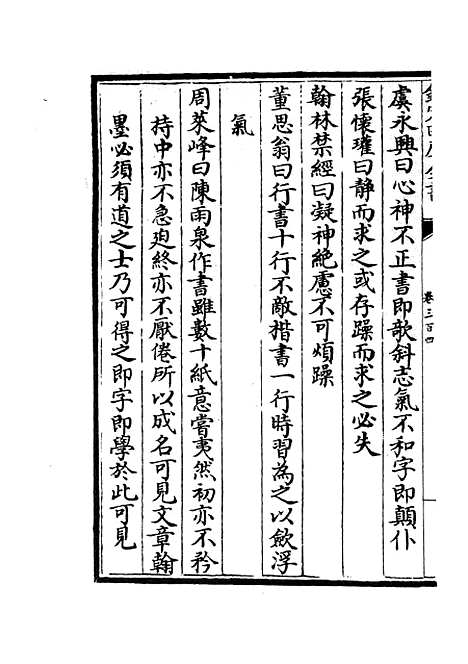 卷三百四
虞永興曰心神不正書即欹斜志氣不和字即顛仆
張懷瓘曰静而求之或存躁而求之必失
翰林禁經曰凝神絶慮不可煩躁
董思翁曰行書十行不敵楷書一行時習為之以歛浮
氣
周萊峰曰陳雨泉作書雖數十紙意嘗夷然初亦不矜
持中亦不急廹終亦不厭倦所以成名可見文章翰
墨必須有道之士乃可得之即字即學於此可見